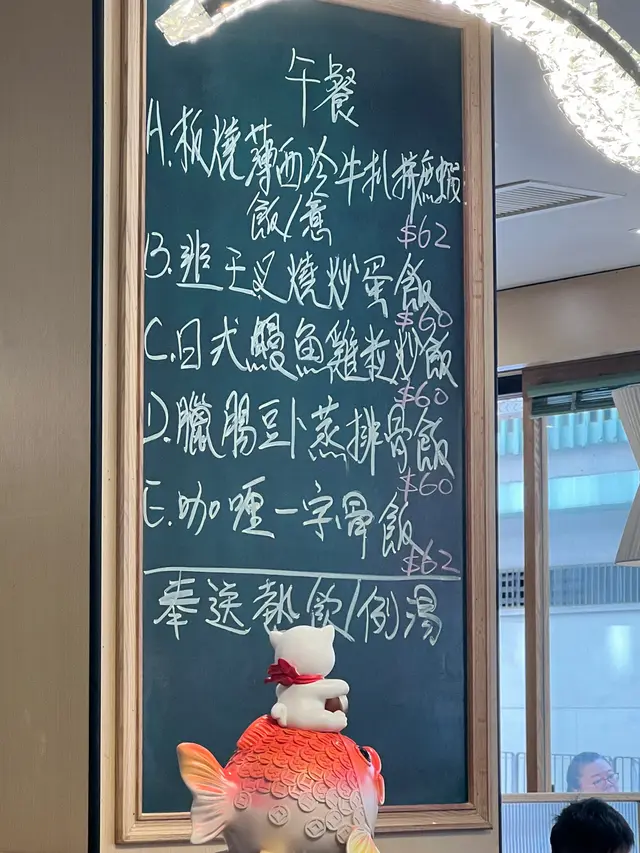 午餐
A.板燒薄西冷牛扒拼魚蝦
飯/意
$62
B.班王义燒炒蛋飯
$60
C.日式鰻魚雞粒炒飯
$60
D.臘腸豆卜蒸排骨飯
$60
E.咖喱一字骨飯
$62
奉送熱飲/例湯